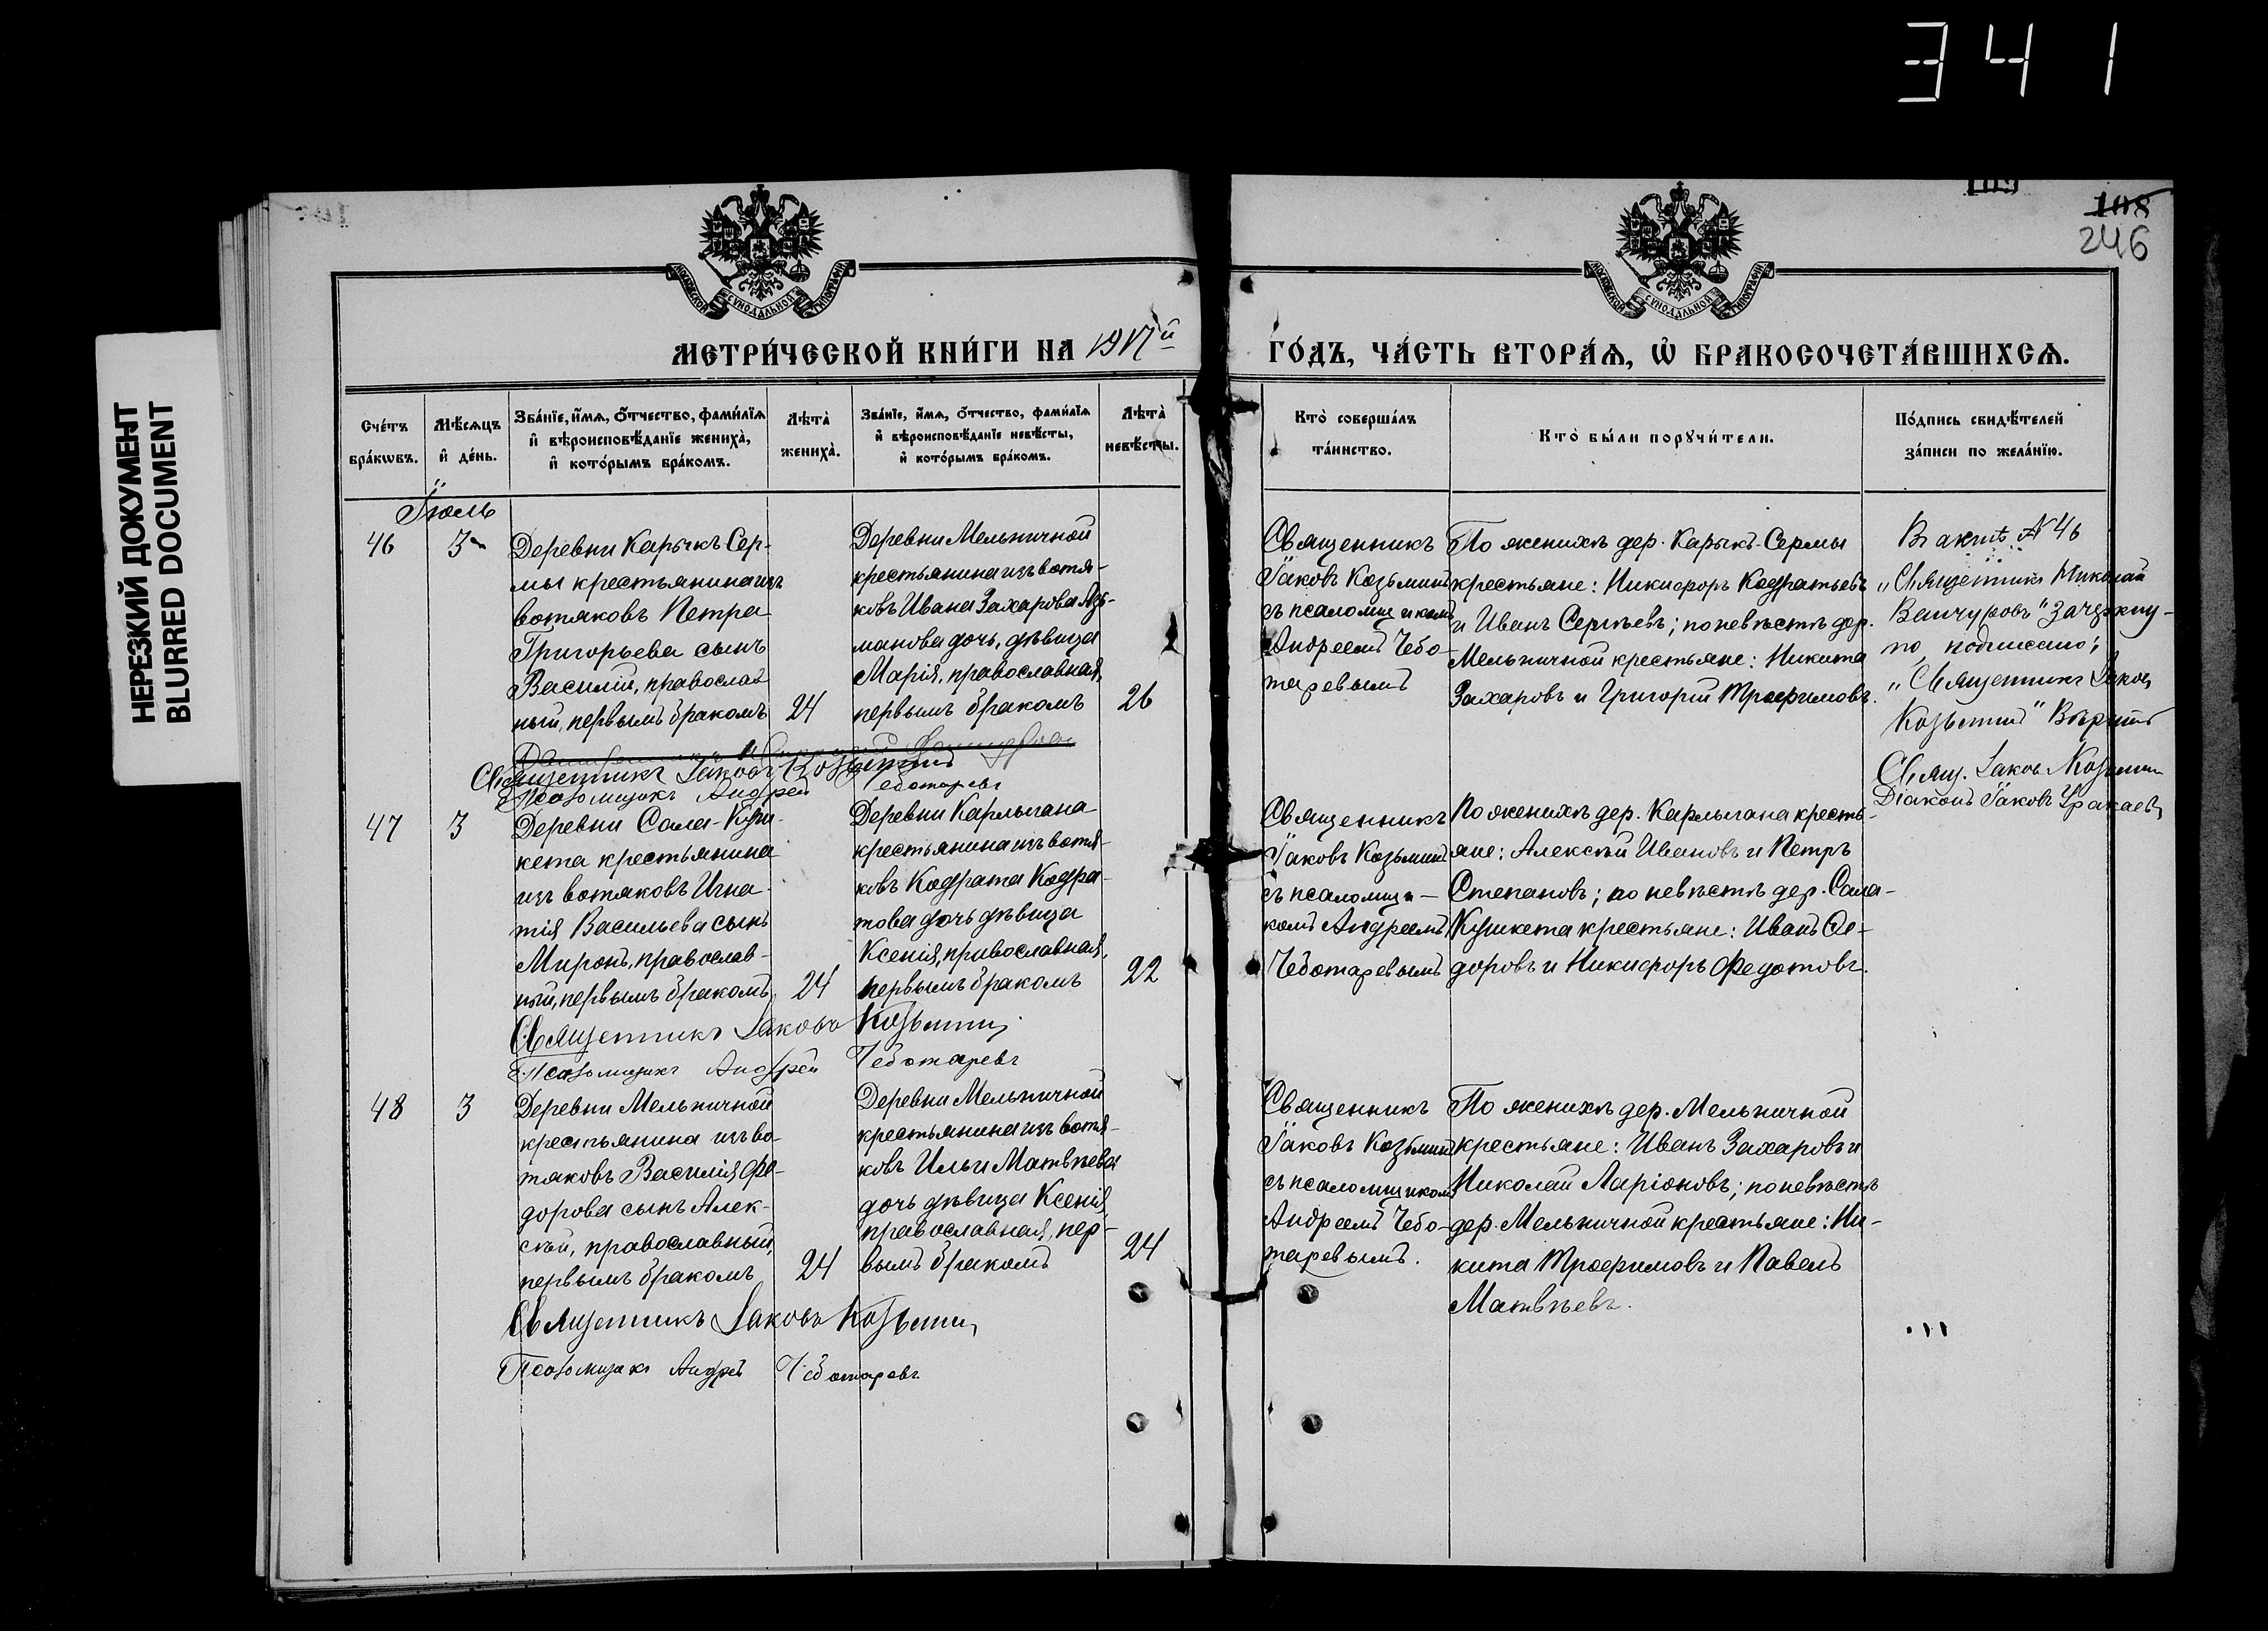 341
НЕРЕЗКИЙ ДОКУМЕНТ
BLURRED DOCUMENT
108
246
МОСКОВСКОЙ СѴНОДАЛЬНОЙ ТИПОГРАФІИ
МОСКОВСКОЙ СѴНОДАЛЬНОЙ ТИПОГРАФІИ
МЕТРИ́ЧЕСКОЙ КНИ́ГИ НА 1917й
ГО́ДЪ, ЧА́СТЬ ВТОРА́Ѧ, Ѽ БРАКОСОЧЕТА́ВШИХСѦ.
Сче́тъ
бра́кѡвъ.
Мѣ́сѧцъ
и҆ де́нь.
Зва́нїе, и҆́мѧ, ѻ҆́тчество, фами́лїѧ
и҆ вѣроисповѣ́данїе жениха̀,
и҆ кото́рымъ бра́комъ.
Лѣ́та̀
жениха̀.
Зва́нїе, и҆́мѧ, ѻ҆́тчество, фами́лїѧ
и҆ вѣроисповѣ́данїе невѣ́сты,
и҆ кото́рымъ бра́комъ.
Лѣ́та̀
невѣ́сты.
Кто̀ соверша́лъ
та́инство.
Кто̀ бы́ли порꙋчи́тели.
По́дпись свидѣ́телей
за́писи по жела́нїю.
Іюль
46
3
Деревни Карыкъ Сер-
мы крестьянина изъ
вотяковъ Петра
Григорьева сынъ
Василій, православ
ный, первымъ бракомъ
24
Деревни Мельничной
крестьянина изъ вотя-
ковъ Ивана Захарова Азь-
манова дочь, дѣвица
Марія, православная,
первымъ бракомъ
26
Священникъ
Іаковъ Козьминъ
съ псаломщикомъ
Андреемъ Чебо-
таревымъ
По женихѣ дер. Карыкъ-Сермы
крестьяне: Никифоръ Кодратьевъ
и Иванъ Сергѣевъ; по невѣстѣ дер.
Мельничной крестьяне: Никита
Захаровъ и Григорій Трофимовъ.
Въ актѣ № 46
"Священникъ Николай
Ванчуровъ" зачеркну-
то, подписано:
"Священникъ Іаковъ
Козьминъ" Вѣрно
Свящ. Іаковъ Козьминъ
Діаконъ Іаковъ Уракаевъ
Священникъ Іаковъ Козьминъ
Псаломщикъ Андрей Чеботаревъ
47
3
Деревни Сала-Куш-
кета крестьянина
изъ вотяковъ Игна-
тія Васильева сынъ
Миронъ, православ-
ный, первымъ бракомъ
24
Деревни Карлыгана
крестьянина изъ вотя-
ковъ Кодрата Кодра-
това дочь дѣвица
Ксенія, православная,
первымъ бракомъ
22
Священникъ
Іаковъ Козьминъ
съ псаломщи-
комъ Андреемъ
Чеботаревымъ
По женихѣ дер. Карлыгана кресть-
яне: Алексѣй Ивановъ и Петръ
Степановъ; по невѣстѣ дер. Сала-
Кушкета крестьяне: Иванъ Ѳе-
доровъ и Никифоръ Федотовъ.
Священникъ Іаковъ Козьминъ
Псаломщикъ Андрей Чеботаревъ
48
3
Деревни Мельничной
крестьянина изъ во-
тяковъ Василія Фе-
дорова сынъ Алек-
сѣй, православный,
первымъ бракомъ
24
Деревни Мельничной
крестьянина изъ вотя-
ковъ Ильи Матвѣева
дочь дѣвица Ксенія,
православная, пер-
вымъ бракомъ
24
Священникъ
Іаковъ Козьминъ
съ псаломщикомъ
Андреемъ Чебо-
таревымъ.
По женихѣ дер. Мельничной
крестьяне: Иванъ Захаровъ и
Николай Ларіоновъ; по невѣстѣ
дер. Мельничной крестьяне: Ни-
кита Трофимовъ и Павелъ
Матвѣевъ.
Священникъ Іаковъ Козьминъ
Псаломщикъ Андрей Чеботаревъ